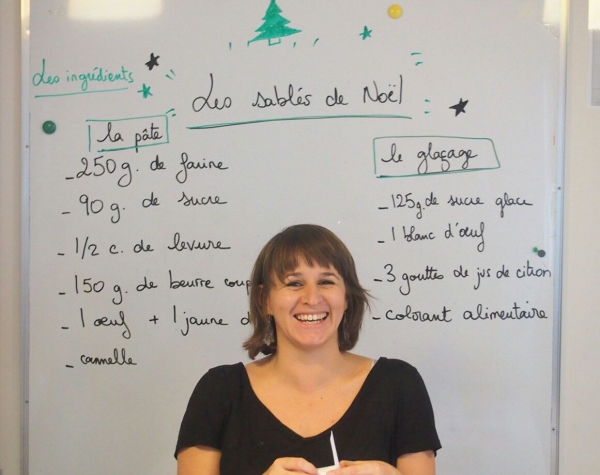 Les ingrédients
Les sablés de Noël
la pâte
- 250 g. de farine
- 90 g. de sucre
- 1/2 c. de levure
- 150 g. de beurre
- 1 œuf + 1 jaune
- cannelle
le glaçage
- 125g. de sucre glace
- 1 blanc d'œuf
- 3 gouttes de jus de citron
- colorant alimentaire